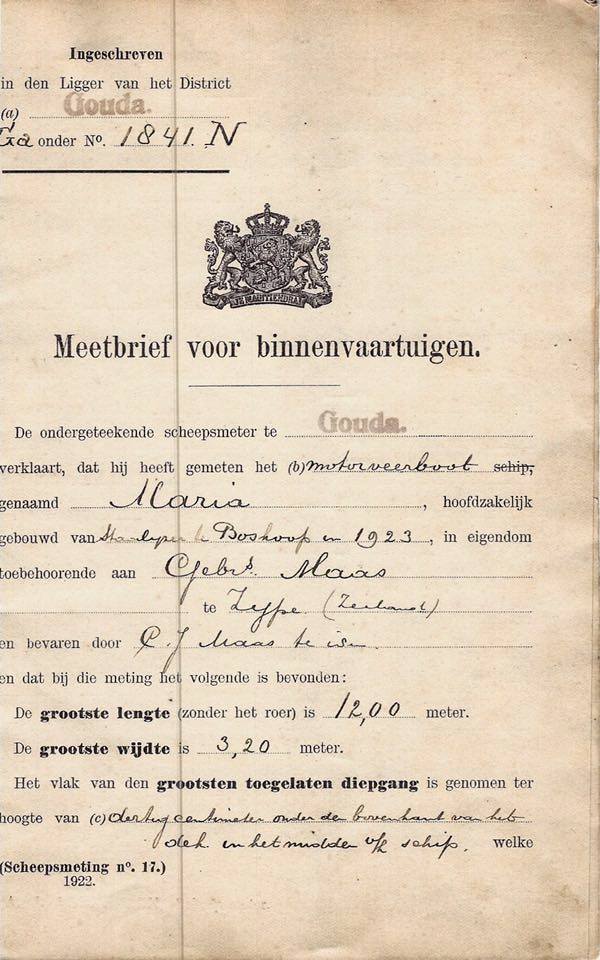 Ingeschreven
in den Ligger van het District
(a) Gouda.
Ga onder No. 1841 N
JE MAINTIENDRAI
Meetbrief voor binnenvaartuigen.
De ondergeteekende scheepsmeter te Gouda.
verklaart, dat hij heeft gemeten het (b) motorveerboot schip,
genaamd Maria, hoofdzakelijk
gebouwd van te Boskoop in 1923, in eigendom
toebehoorende aan Gebrs. Maas
te Zype (Zeeland)
en bevaren door C. J Maas te
en dat bij die meting het volgende is bevonden:
De grootste lengte (zonder het roer) is 12,00 meter.
De grootste wijdte is 3,20 meter.
Het vlak van den grootsten toegelaten diepgang is genomen ter
hoogte van (c) dertig centimeter onder de bovenkant van het
dek in het midden v/h schip, welke
(Scheepsmeting no. 17.)
1922.